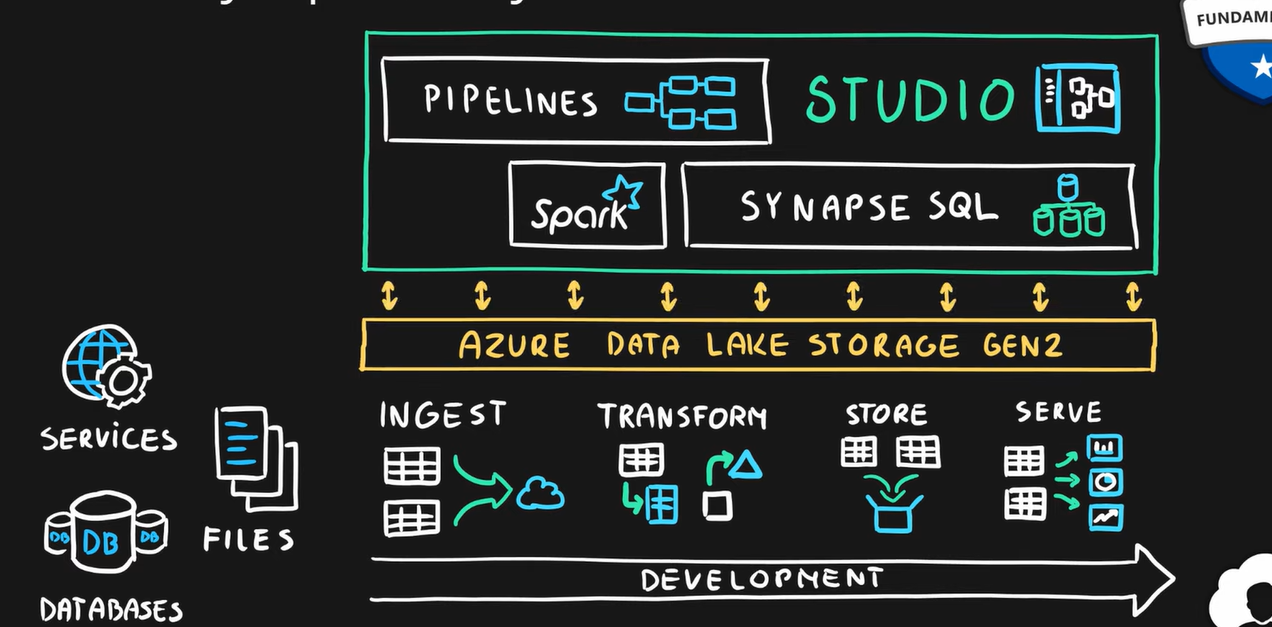 PIPELINES
STUDIO
Spark
SYNAPSE SQL
AZURE DATA LAKE STORAGE GEN2
SERVICES
FILES
DB DB DB
DATABASES
INGEST
TRANSFORM
STORE
SERVE
DEVELOPMENT